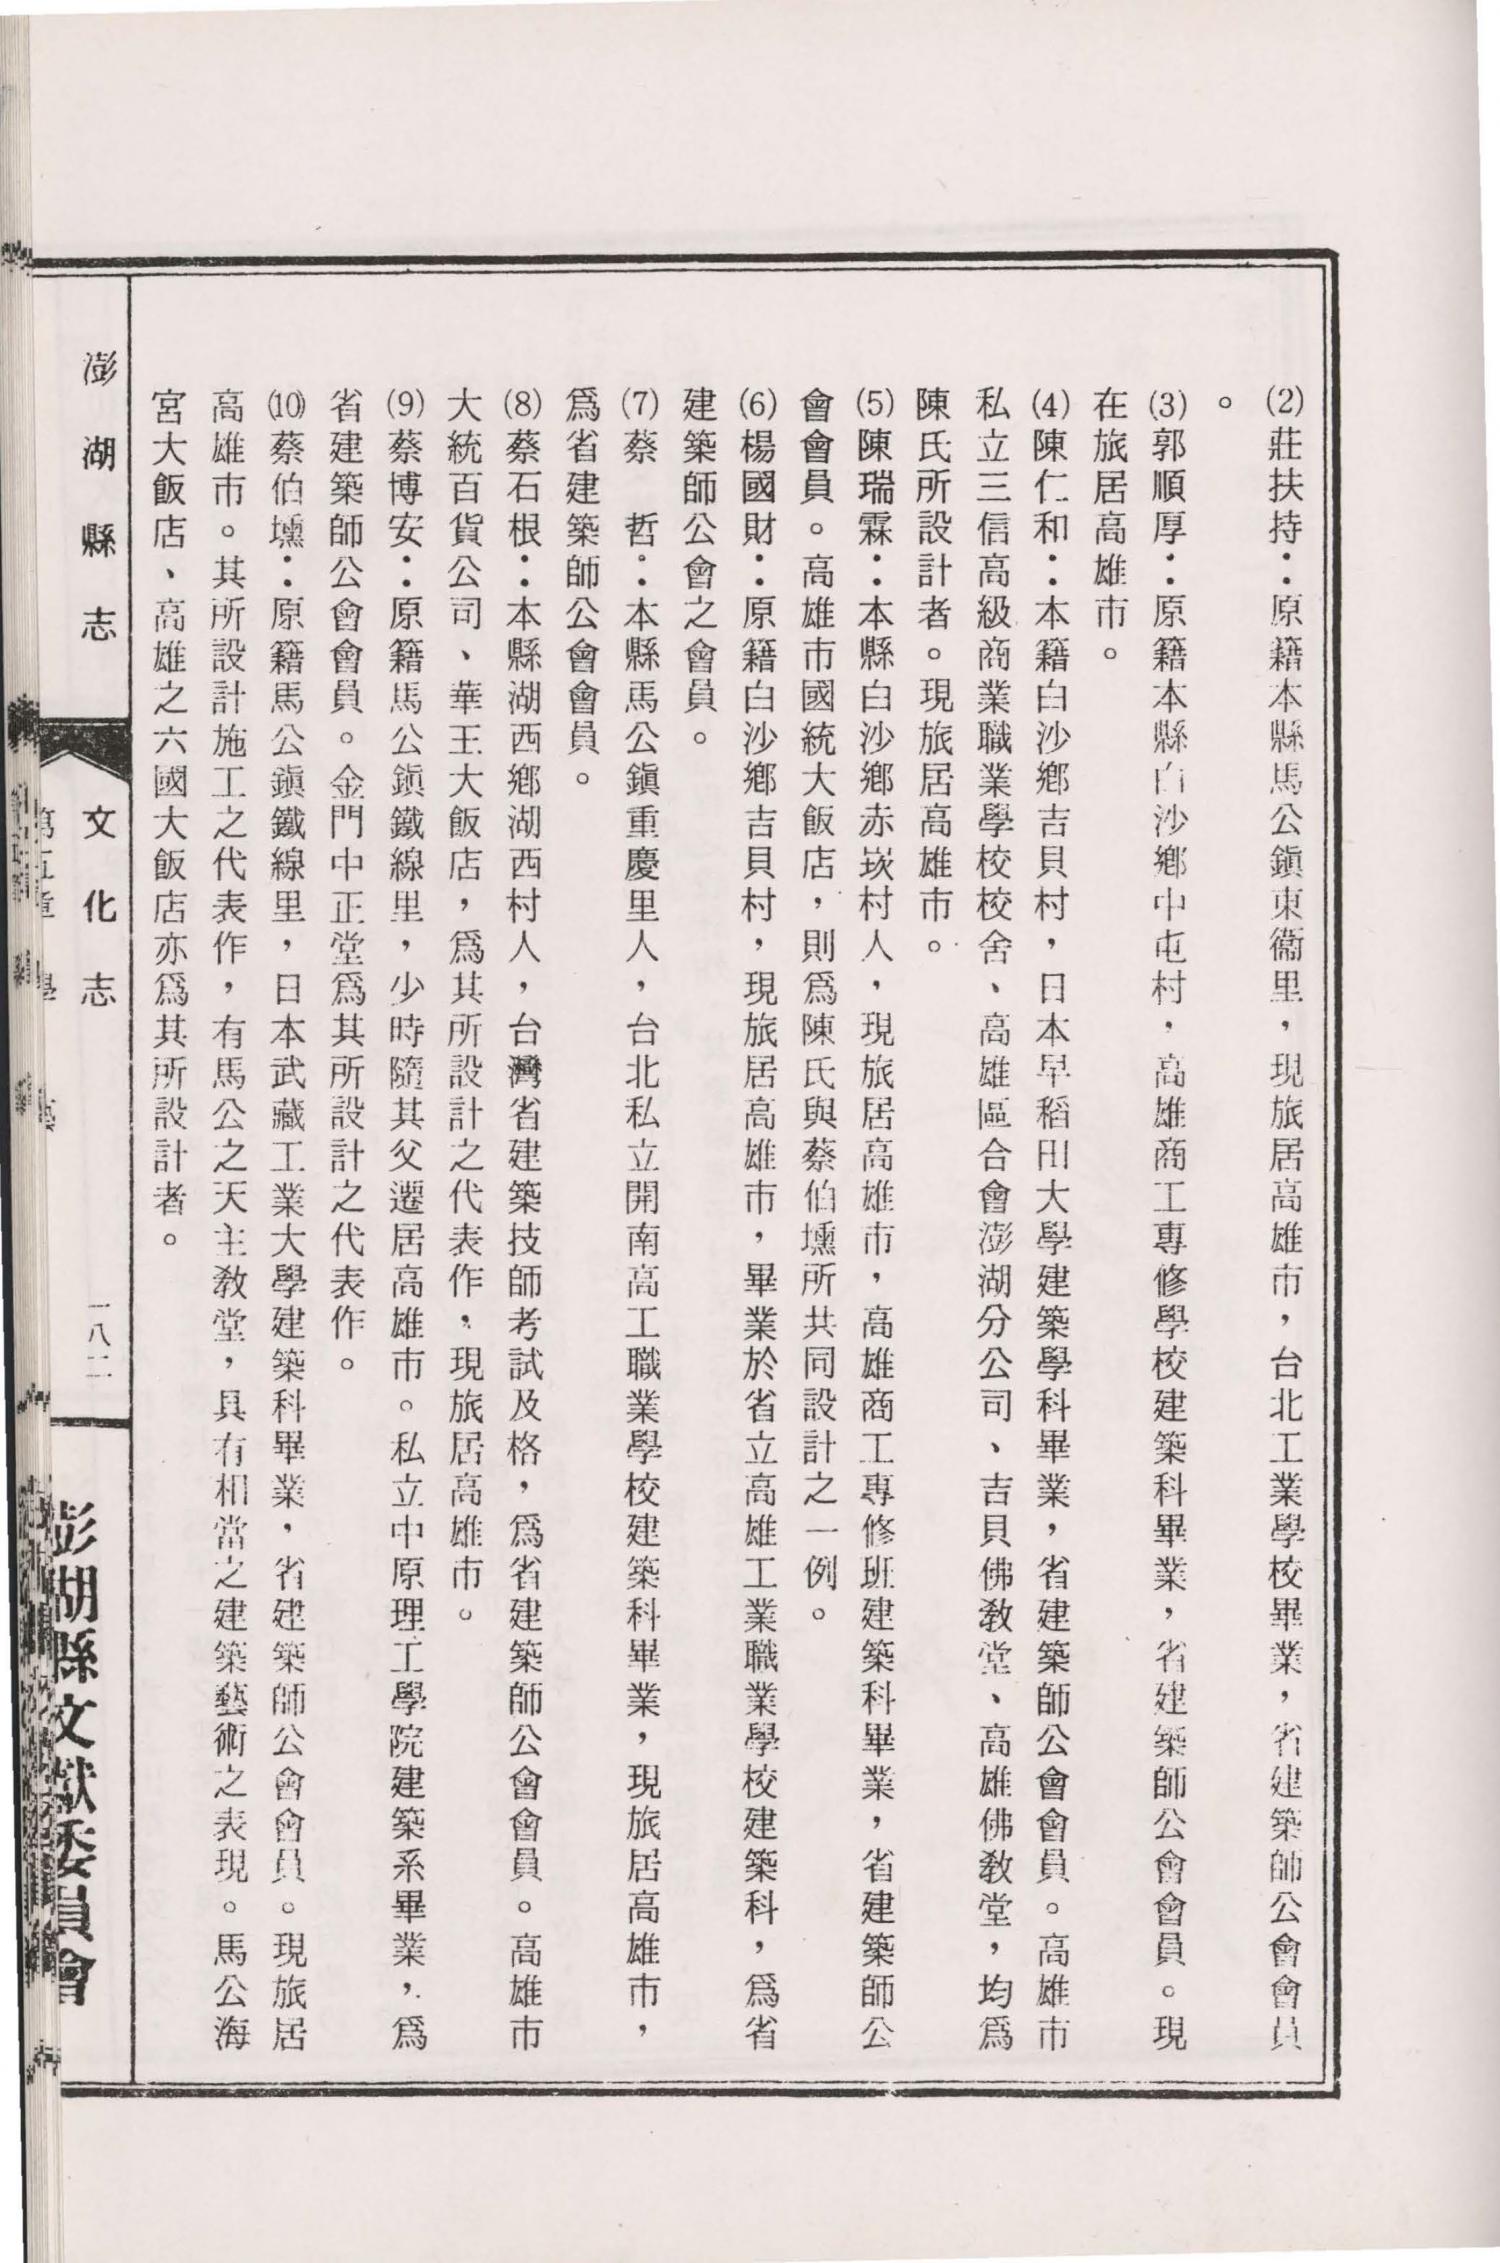 (2)莊扶持：原籍本縣馬公鎮東衞里，現旅居高雄市，台北工業學校畢業，省建築師公會會員
。
(3)郭順厚：原籍本縣白沙鄉中屯村，高雄商工專修學校建築科畢業，省建築師公會會員。現
在旅居高雄市。
(4)陳仁和：本籍白沙鄉吉貝村，日本早稻田大學建築學科畢業，省建築師公會會員。高雄市
私立三信高級商業職業學校校舍、高雄區合會澎湖分公司、吉貝佛教堂、高雄佛教堂，均爲
陳氏所設計者。現旅居高雄市。
(5)陳瑞霖：本縣白沙鄉赤崁村人，現旅居高雄市，高雄商工專修班建築科畢業，省建築師公
會會員。高雄市國統大飯店，則爲陳氏與蔡伯壎所共同設計之一例。
(6)楊國財：原籍白沙鄉吉貝村，現旅居高雄市，畢業於省立高雄工業職業學校建築科，爲省
建築師公會之會員。
(7)蔡　哲：本縣馬公鎮重慶里人，台北私立開南高工職業學校建築科畢業，現旅居高雄市，
爲省建築師公會會員。
(8)蔡石根：本縣湖西鄉湖西村人，台灣省建築技師考試及格，爲省建築師公會會員。高雄市
大統百貨公司、華王大飯店，爲其所設計之代表作，現旅居高雄市。
(9)蔡博安：原籍馬公鎮鐵線里，少時隨其父遷居高雄市。私立中原理工學院建築系畢業，爲
省建築師公會會員。金門中正堂爲其所設計之代表作。
(10)蔡伯壎：原籍馬公鎮鐵線里，日本武藏工業大學建築科畢業，省建築師公會會員。現旅居
高雄市。其所設計施工之代表作，有馬公之天主教堂，具有相當之建築藝術之表現。馬公海
宮大飯店、高雄之六國大飯店亦爲其所設計者。
澎湖縣志　文化志　一八二
第五章　學　藝
澎湖縣文獻委員會